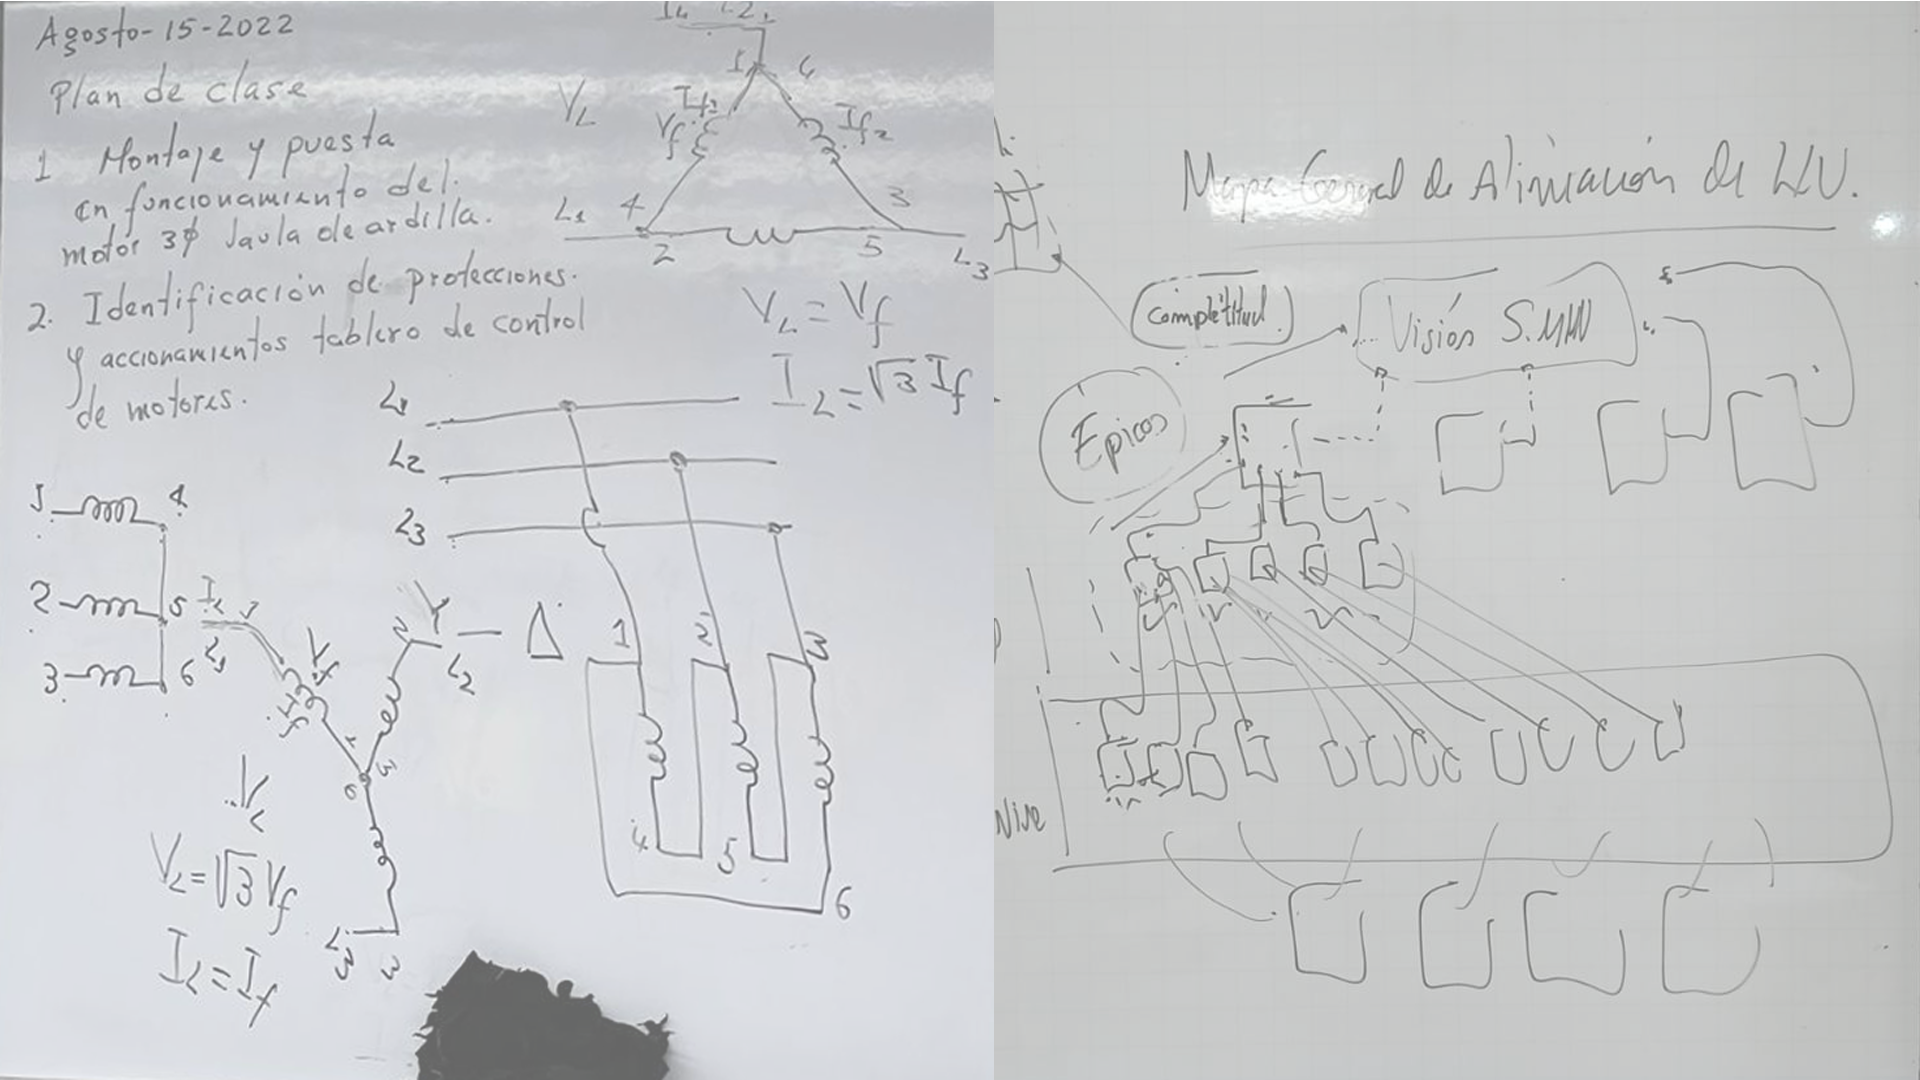 Agosto-15-2022
Plan de clase
1 Montaje y puesta
en funcionamiento del.
motor 3φ Jaula de ardilla.
2. Identificación de protecciones.
y accionamientos tablero de control
de motores.
L2
1 6
VL
If1
Vf
If2
L1 4 3
2 5 L3
VL = Vf
IL = √3 If
L1
L2
L3
1 4
2 5
3 6
IL 1
L1
Vf
If
2 Y
L2
Δ
4 5
6
VL
VL = √3 Vf
IL = If
L3 3
1 2 3
4 5 6
Mapa General de Alineación de
Completitud.
Visión
Epicas